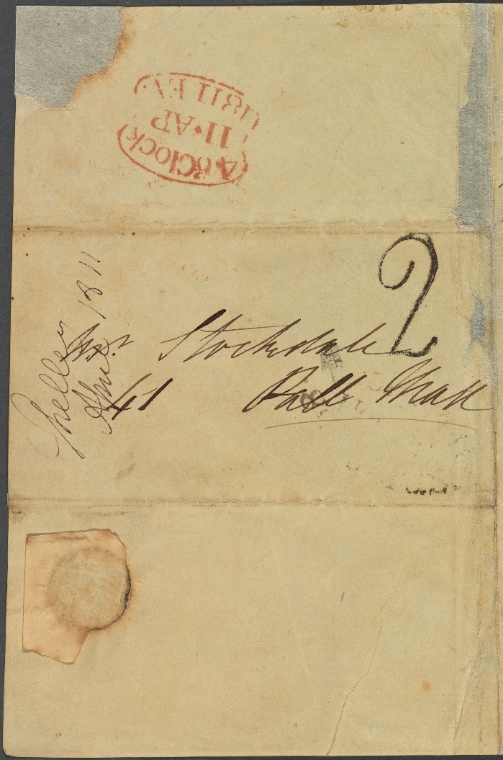 4 o'Clock
11·AP
1811 EV
2
Mr. Stockdale
41 Pall Mall
Shelley
April 1811